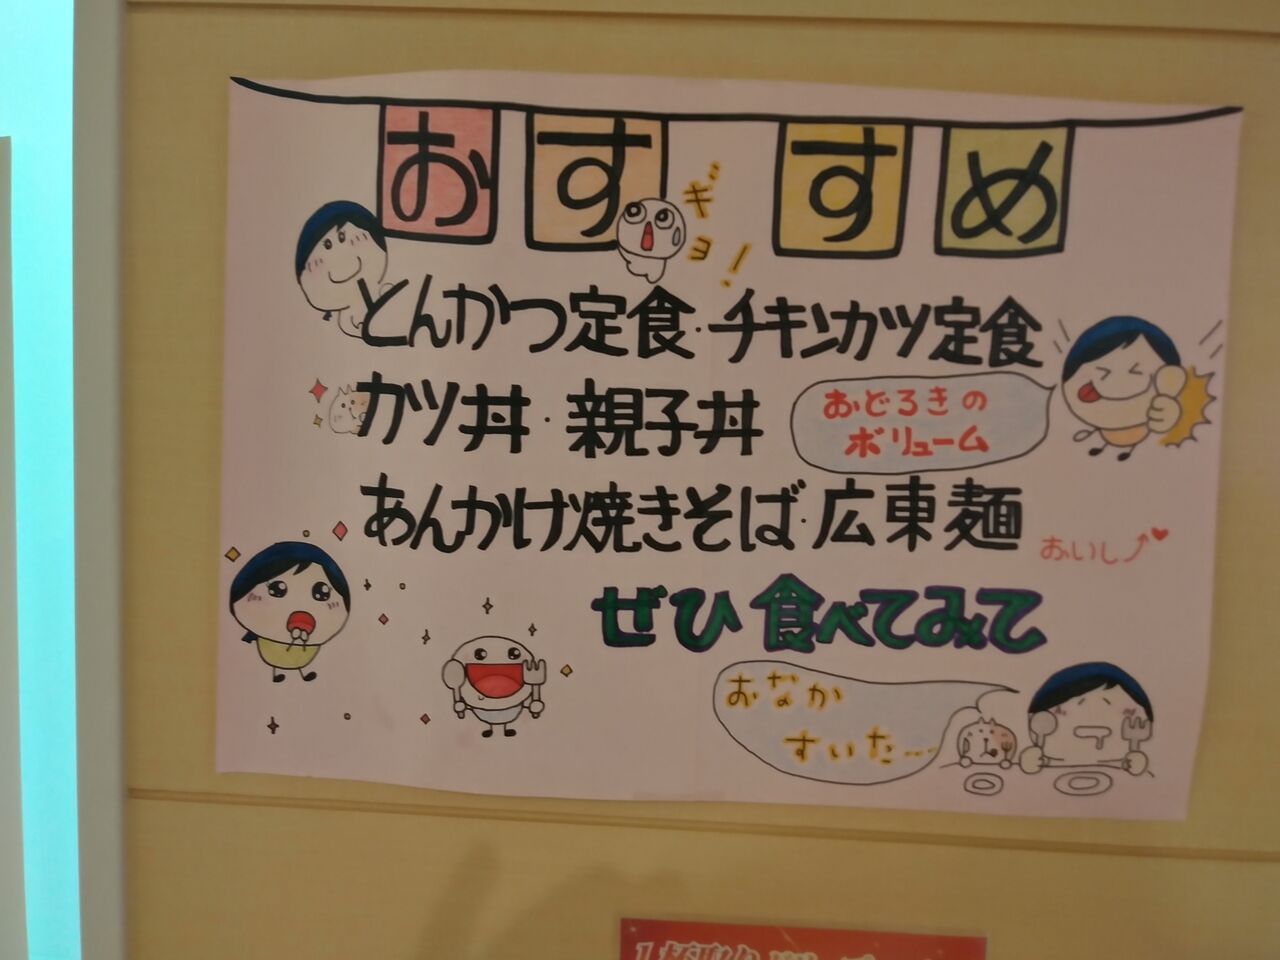 おすすめ
ギョ！
とんかつ定食・チキンカツ定食
カツ丼・親子丼
おどろきの
ボリューム
あんかけ焼きそば・広東麺
おいし
ぜひ食べてみて
おなか
すいた…